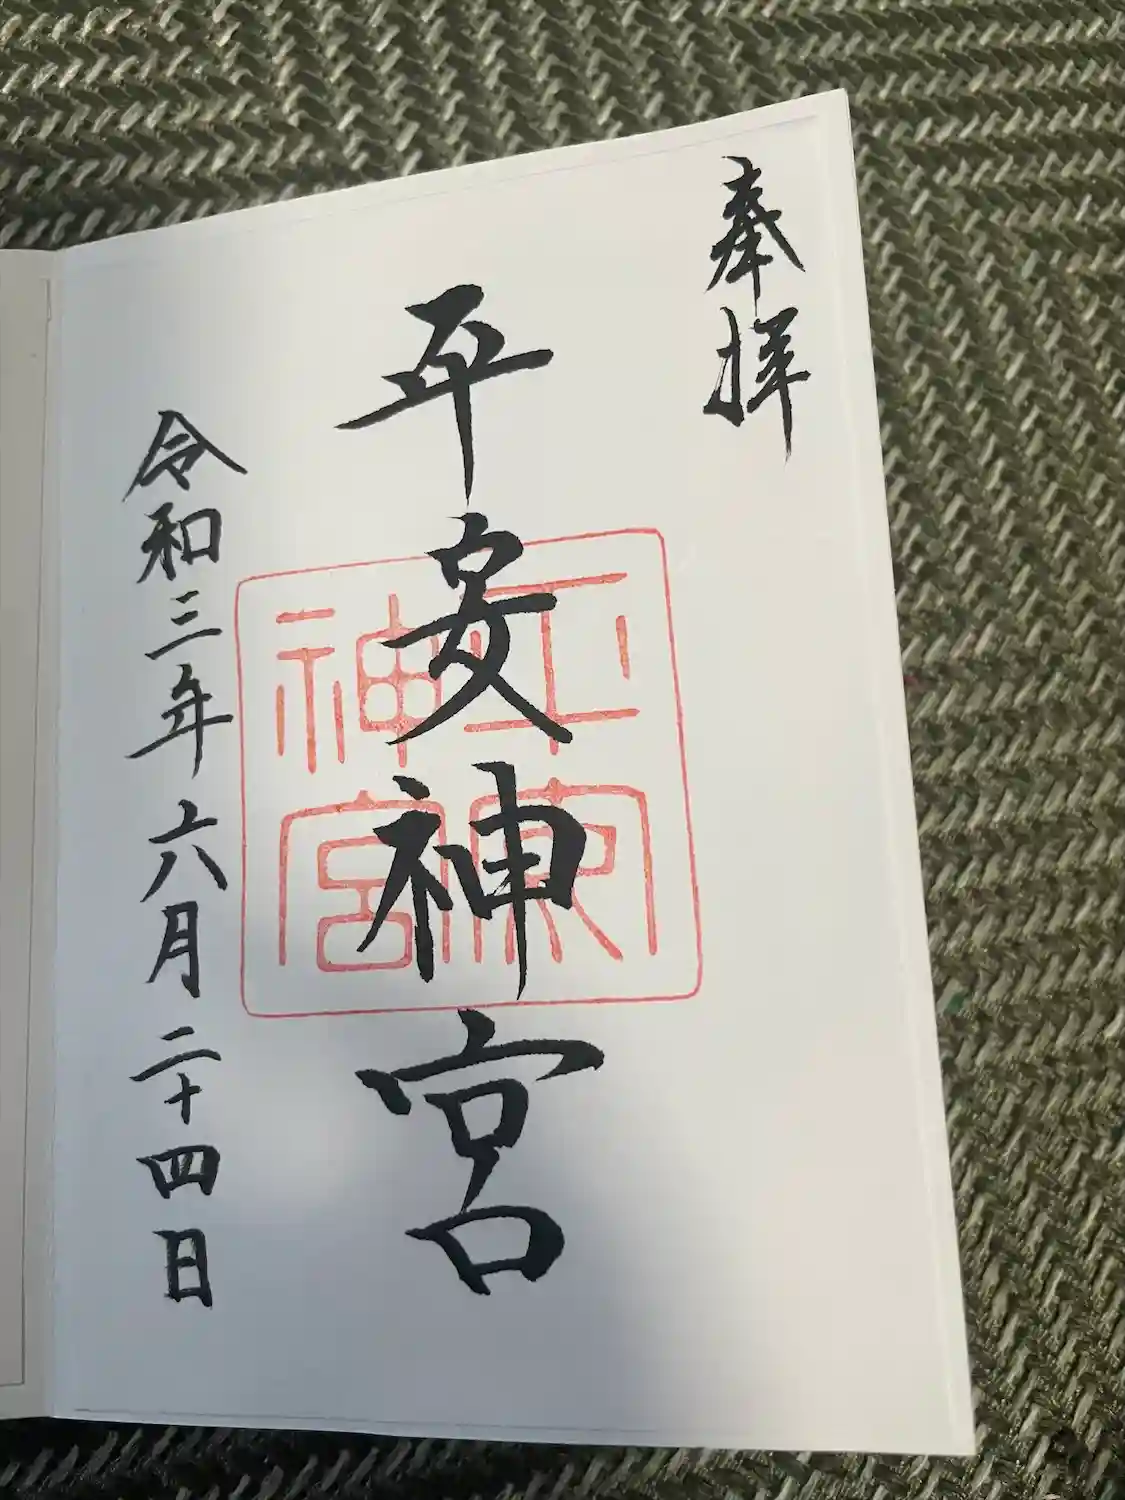 奉拝
平安神宮
平安神宮
令和三年六月二十四日